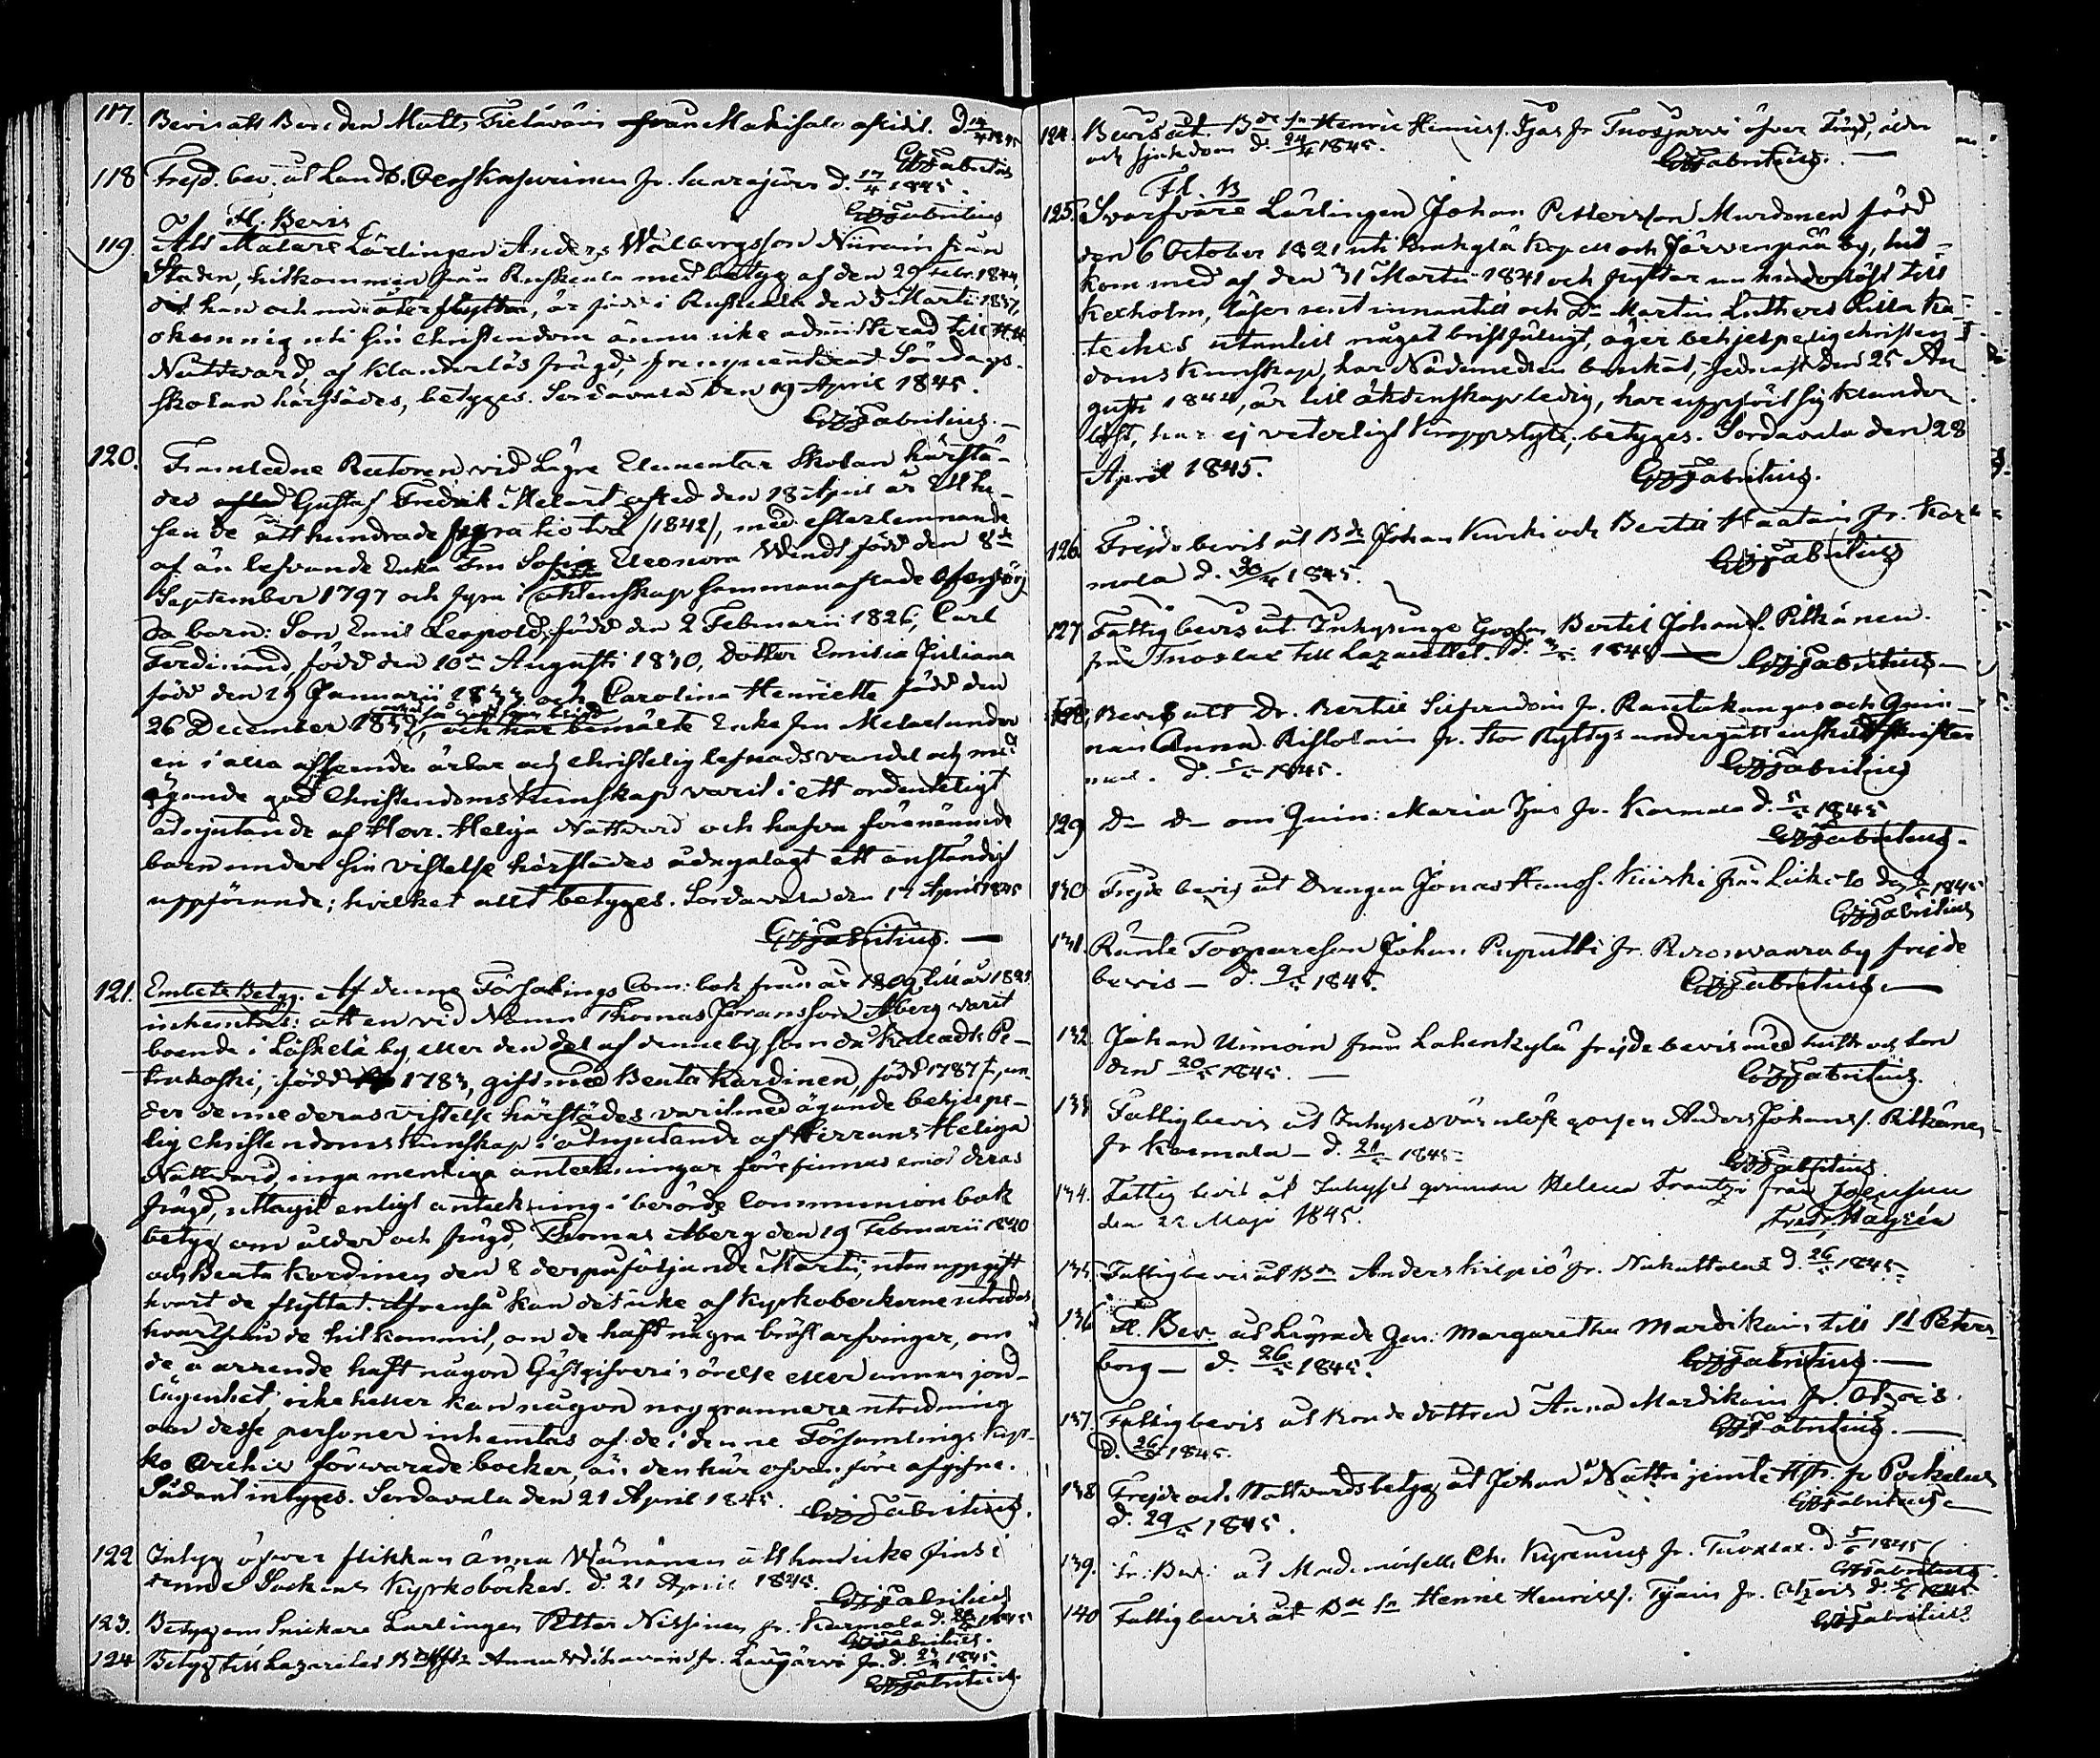 117. Bevis att Bonden Matts Tietäväin från Makisalo aflidit. d. 17/4 1845
GWFabritius
118 Frejd. bev. åt Landb. Kasurinen fr. d. 17/4 1845.
GWFabritius
Fl. Bevis
119. Att Målare Lärlingen Anders Wallbergsson Niirain från
Staden, hitkommen från Ruskeala med betyg af den 29 Febr. 1844,
dit han och nu återflyttar, är född i Ruskeala den 5 Martii 1837,
okunnig uti sin Christendom ännu icke admitterad till H. H.
Nattward af klanderlös frägd, frequenterat Söndags-
skolan härstädes, betygas. Sordavala den 19 April 1845.
GWFabritius.
120. Framledne Rectoren vid Lägre Elementar Skolan härstä-
des Gustaf Fredrik Melart afled den 18 April år Ett tu-
sen de ått hundrade fyra tio två /1842/, med efterlemnande
af än lefvande Enka Fru Sofia Eleonora Wendt född den 8de
September 1797 och fyra i detta äktenskap sammanaflade oförsörj
da barn: Son Emil Leopold, född den 2 Februarii 1826, Carl
Ferdinand, född den 10de Augusti 1830, dotter Emilia Juliana
född den 29 Januarii 1833 och Carolina Henriette född den
26 December och har bemälte Enke Fru Melart under
en i alla afseenden ärbar och christelig lefnadsvandel och med
ägande god Christendomskunskap varit i ett ordenteligt
adnjutande af Herr. Heliga Nattvard och hafva förenämnde
barn under sin vistelse härstädes ådagalagt ett anständigt
uppförande; hvilket allt betygas. Sordavala den 17 April 1845
GWFabritius.
121. Embets Betyg. Af denne Församlings Com: bok från år 1809 till år 1821
inhemtas: att en vid Namn Thomas Göransson Åberg varit
boende i Läskelä by, eller den del af denne by som då kallades Pe-
trakoski, född 1783, gift med Beata Kardinen, född 1787, un-
der denne deras vistelse härstädes varit med ägande behjelpe-
lig Christendomskunskap i adnjutande af Herrans Heliga
Nattvard, inga menliga anteckningar förefinnas emot deras
frägd, uttagit enligt anteckning i berörde Communion bok
betyg om ålder och frägd, Thomas Åberg den 19 Februarii 1820
och Beata Kardinen den 8 derpåföljande Martii, utan uppgift
hvart de flyttat. Äfvenså kan det icke af kyrkoböckerne utredas
hvarifrån de hitkommit, om de haft några bröstarfvingar, om
de å arrende haft någon Gästgifveri rörelse eller annan jord-
lägenhet, icke heller kan någon noggrannare utredning
om desse personer inhemtas af de i denne Församlings Kyr-
ko Archiv förvarade böcker, än den här ofvan före afgifne.
Sådant intygas. Sordavala den 21 April 1845. GWFabritius.
122 Intyg öfver flickan Anna Wänänen att hon icke fins i
denne Sockens Kyrkoböcker. d. 21 April 1845.
GWFabritius
123. Betyg om Snickare Lärlingen Petter Nissinen fr. Karmala d. 1845
GWFabritius.
124 Betyg till Lazarettet Anna fr. d. 1845.
GWFabritius.
124. Bevis åt Bde sn Henric Henrics. Tjäs fr Tuoxjärvi öfver Frägd, ålder
och sjukdom d. 24/4 1845.
GWFabritius.
Fl. B
125. Svarfvare Lärlingen Johan Pettersson Murdonen född
den 6 October 1821 uti Brakylä Kapell och Järvenpää by, hit-
kom med af den 31 Martii 1841 och flyttar nu hinderlöst till
Kexholm, läser rent innantill och Dr Martin Luthers Lilla Ka-
teches utantill något bristfälligt, äger behjelpelig christen-
doms kunskap, har Nådemedlen brukat, sednast den 25 Au
gusti 1844, är till äktenskap ledig, har uppfört sig klander
löst, har ej veterligt kroppslyte; betygas. Sordavala den 28
April 1845.
GWFabritius.
126. Frejdebevis åt Bde Johan Kurki och Bertil Haatain fr. Kar-
mala d. 30/4 1845.
GWFabritius
127 Fattigbevis åt Inhysinge Gossen Bertil Johans. Pitkänen.
från Tuoxlax till Lazarettet. d. 1845
GWFabritius
128. Bevis att Dr. Bertil fr. Rantakangas och Qvin-
nan Anna Ristolain fr. Stor Ryttys undergått enskilt skrifter
mål. d. 5/5 1845.
GWFabritius
129 Do Do om Qvin: Maria Tjäs fr. Karmala d. 5/5 1845
GWFabritius.
130 Frejde bevis åt Drengen Jonas Hanss. Kiiski från den 1845
GWFabritius
131. Ränte Torpareson Johan Puputti fr. by frejde
bevis d. 9/5 1845.
GWFabritius.
132. Johan Uimoin från Lahenkylä frejdebevis med hustr. och Son
den 20/5 1845.
GWFabritius.
133 Fattigbevis åt Inhyses värnlöse gossen Anders Johanss. Pitkänen
fr Karmala d. 21/5 1845
GWFabritius.
134. Fattig bevis åt Inhyses qvinnan Helena Frantzi från Joensuu
den 22 Maji 1845.
Fredr. Hayrén
135. Fattigbevis åt Bde Anders Kilpiö fr. Nukuttalax d. 26/5 1845
136 Fl. Bev. åt Lägrade Qvn: Margaretha Mardikain till St Peters
borg d. 26/5 1845.
GWFabritius.
137. Fattigbevis åt Bonde dottren Anna Mardikain fr. Otzois.
d. 26/5 1845.
GWFabritius.
138 Frejde och Nattvardsbetyg åt Johan Nätti jemte Hstr. fr Pockelus
d. 29/5 1845.
GWFabritius
139. Fr: Bev: åt Mademoiselle Ch. Kyrenius fr. Tuoxlax. d. 5/6 1845
GWFabritius.
140 Fattigbevis åt Bde sn Henric Henrics. Tjäin fr. Otzois d. 1845
GWFabritius.